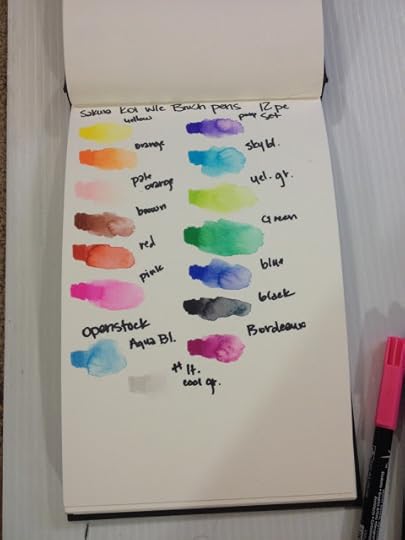 Sakura Koi w/c Brush pens 12 pc set
yellow
orange
pale orange
brown
red
pink
purp
sky bl.
yel. gr.
Green
blue
black
Openstock
Aqua Bl.
Bordeaux
# lt. cool gr.